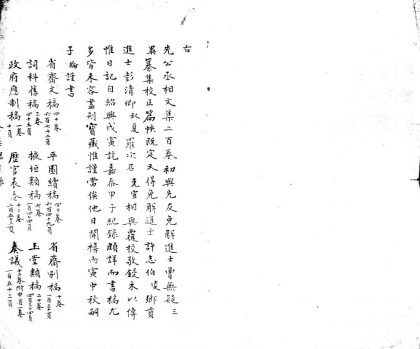 右
先公丞相文集二百卷初與先友免解進士曾無疑三
異纂集校正篇帙既定又得免解進士許志伯凌鄉貢
進士彭清卿叔夏羅次君克宣相與覆校鋟木以傳
惟日記自紹興戊寅訖嘉泰甲子紀錄頗詳而書稿尤
多皆未容盡刻寶藏惟謹當俟他日開禧丙寅中秋嗣
子綸謹書
省齋文稿四十卷 平園續稿四十卷 省齋別稿十卷
詞科舊稿三卷 掖垣類稿七卷 玉堂類稿二十卷
政府應制稿一卷 歷官表奏十二卷 奏議十二卷